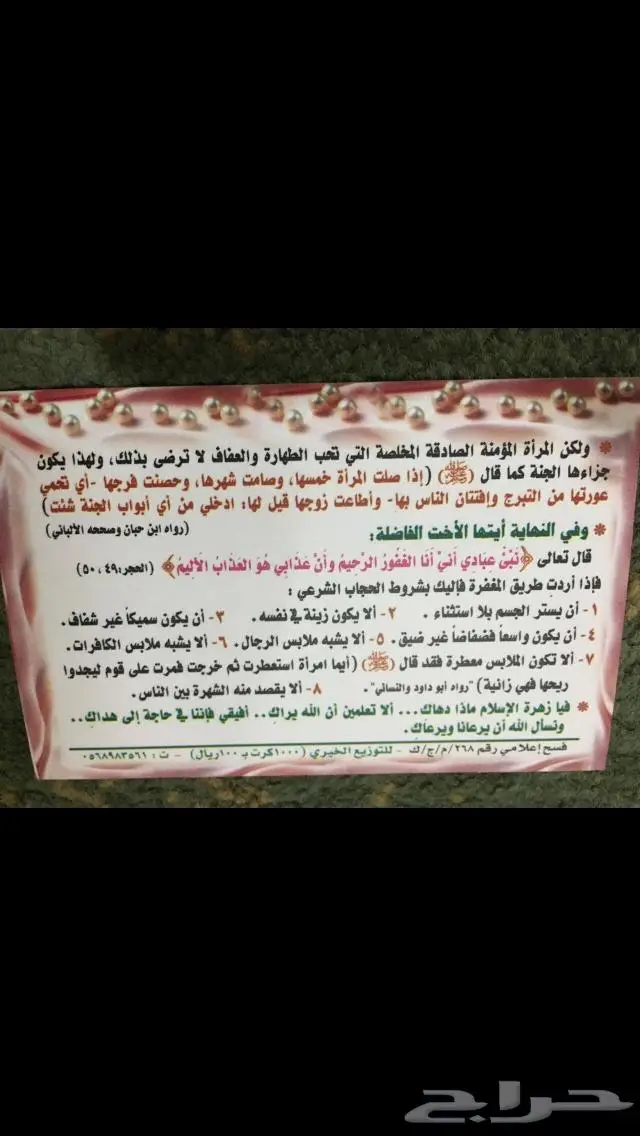 * ولكن المرأة المؤمنة الصادقة المخلصة التي تحب الطهارة والعفاف لا ترضى بذلك، ولهذا يكون
جزاءها الجنة كما قال (ﷺ) (إذا صلت المرأة خمسها، وصامت شهرها، وحصنت فرجها -أي تحمي
عورتها من التبرج وإفتتان الناس بها- وأطاعت زوجها قيل لها: ادخلي من أي أبواب الجنة شئت)
(رواه ابن حبان وصححه الألباني)
* وفي النهاية أيتها الأخت الفاضلة:
قال تعالى ﴿نَبِّئْ عِبَادِي أَنِّي أَنَا الغَفُورُ الرَّحِيمُ وَأَنَّ عَذَابِي هُوَ العَذَابُ الأَلِيمُ﴾ (الحجر:٤٩، ٥٠)
فإذا أردتِ طريق المغفرة فإليك بشروط الحجاب الشرعي :
١- أن يستر الجسم بلا استثناء . ٢- ألا يكون زينة في نفسه . ٣- أن يكون سميكاً غير شفاف .
٤- أن يكون واسعاً فضفاضاً غير ضيق . ٥- ألا يشبه ملابس الرجال . ٦- ألا يشبه ملابس الكافرات .
٧- ألا تكون الملابس معطرة فقد قال (ﷺ) (أيما امرأة استعطرت ثم خرجت فمرت على قوم ليجدوا
ريحها فهي زانية) "رواه أبو داود والنسائي". ٨- ألا يقصد منه الشهرة بين الناس .
* فيا زهرة الإسلام ماذا دهاك... ألا تعلمين أن الله يراك.. أفيقي فإننا في حاجة إلى هداك..
ونسأل الله أن يرعانا ويرعاك.
فسح إعلامي رقم ٢٦٨/م/ج/ك - للتوزيع الخيري (١٠٠٠كرت بـ ١٠٠ريال) - ت : ٠٥٦٨٩٨٣٥٦١
حراج